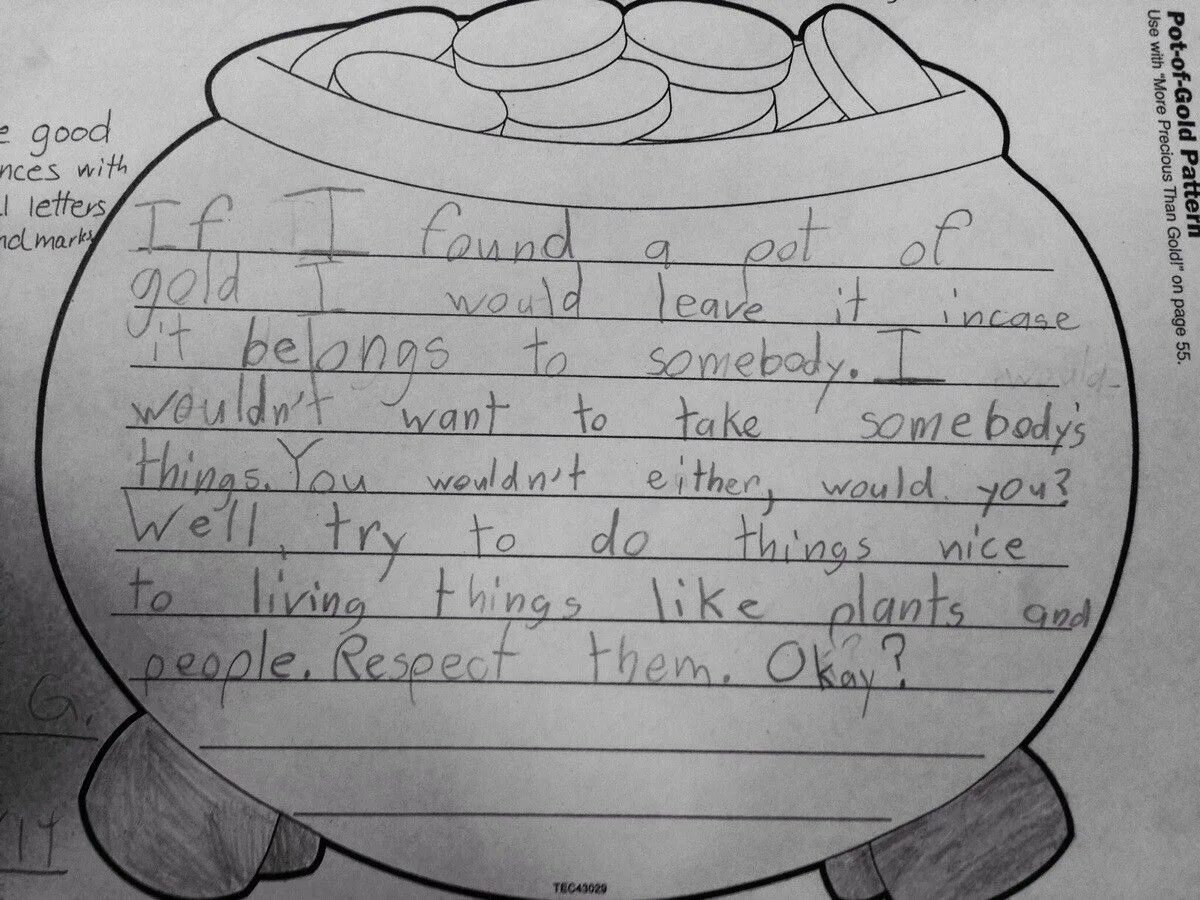 Pot-of-Gold Pattern
Use with "More Precious Than Gold!" on page 55.
good
with
letters
If I found a pot of
gold I would leave it incase
it belongs to somebody. I
wouldn't want to take somebody's
things. You wouldn't either, would you?
We'll try to do things nice
to living things like plants and
people. Respect them. Okay?
G.
TEC43029